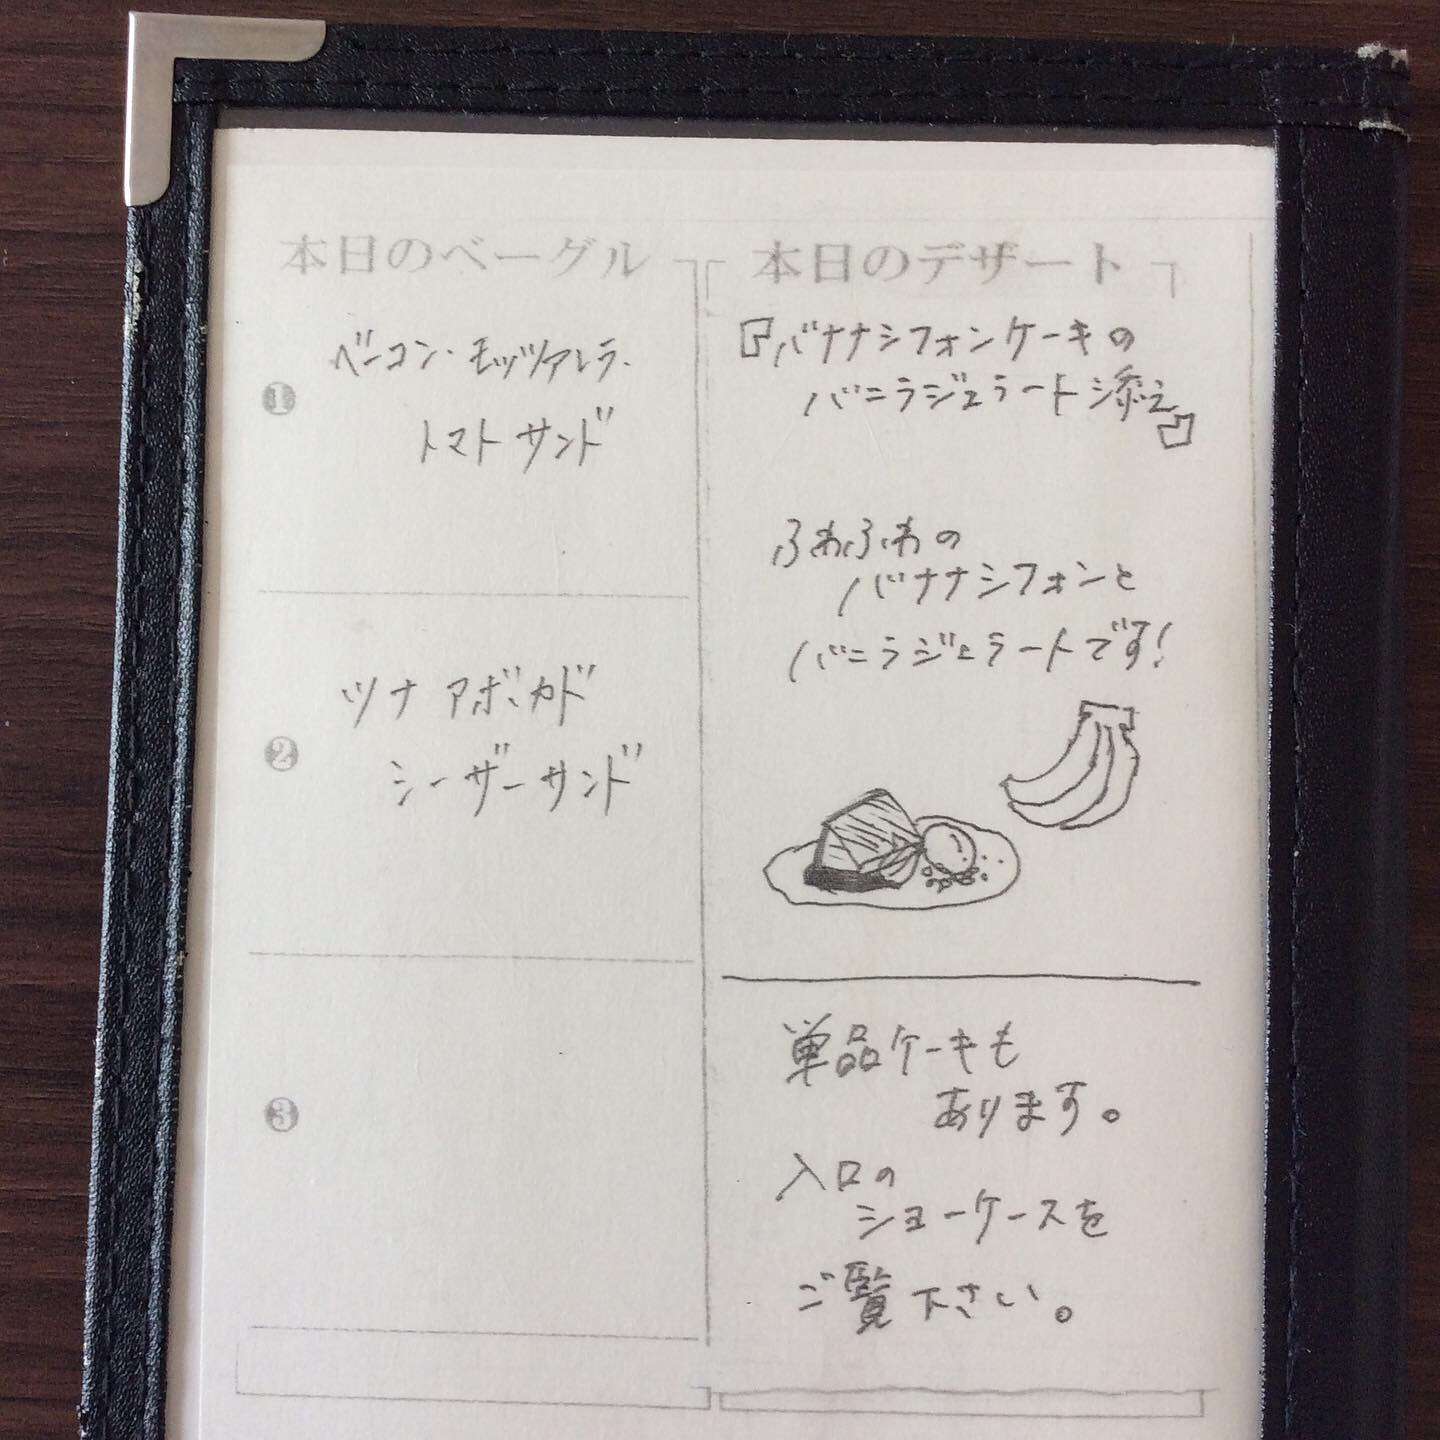 本日のベーグル
❶
ベーコン・モッツァレラ・
トマトサンド
❷
ツナアボカド
シーザーサンド
❸
本日のデザート
『バナナシフォンケーキの
バニラジェラート添え』
ふわふわの
バナナシフォンと
バニラジェラートです!
単品ケーキも
あります。
入口の
ショーケースを
ご覧下さい。